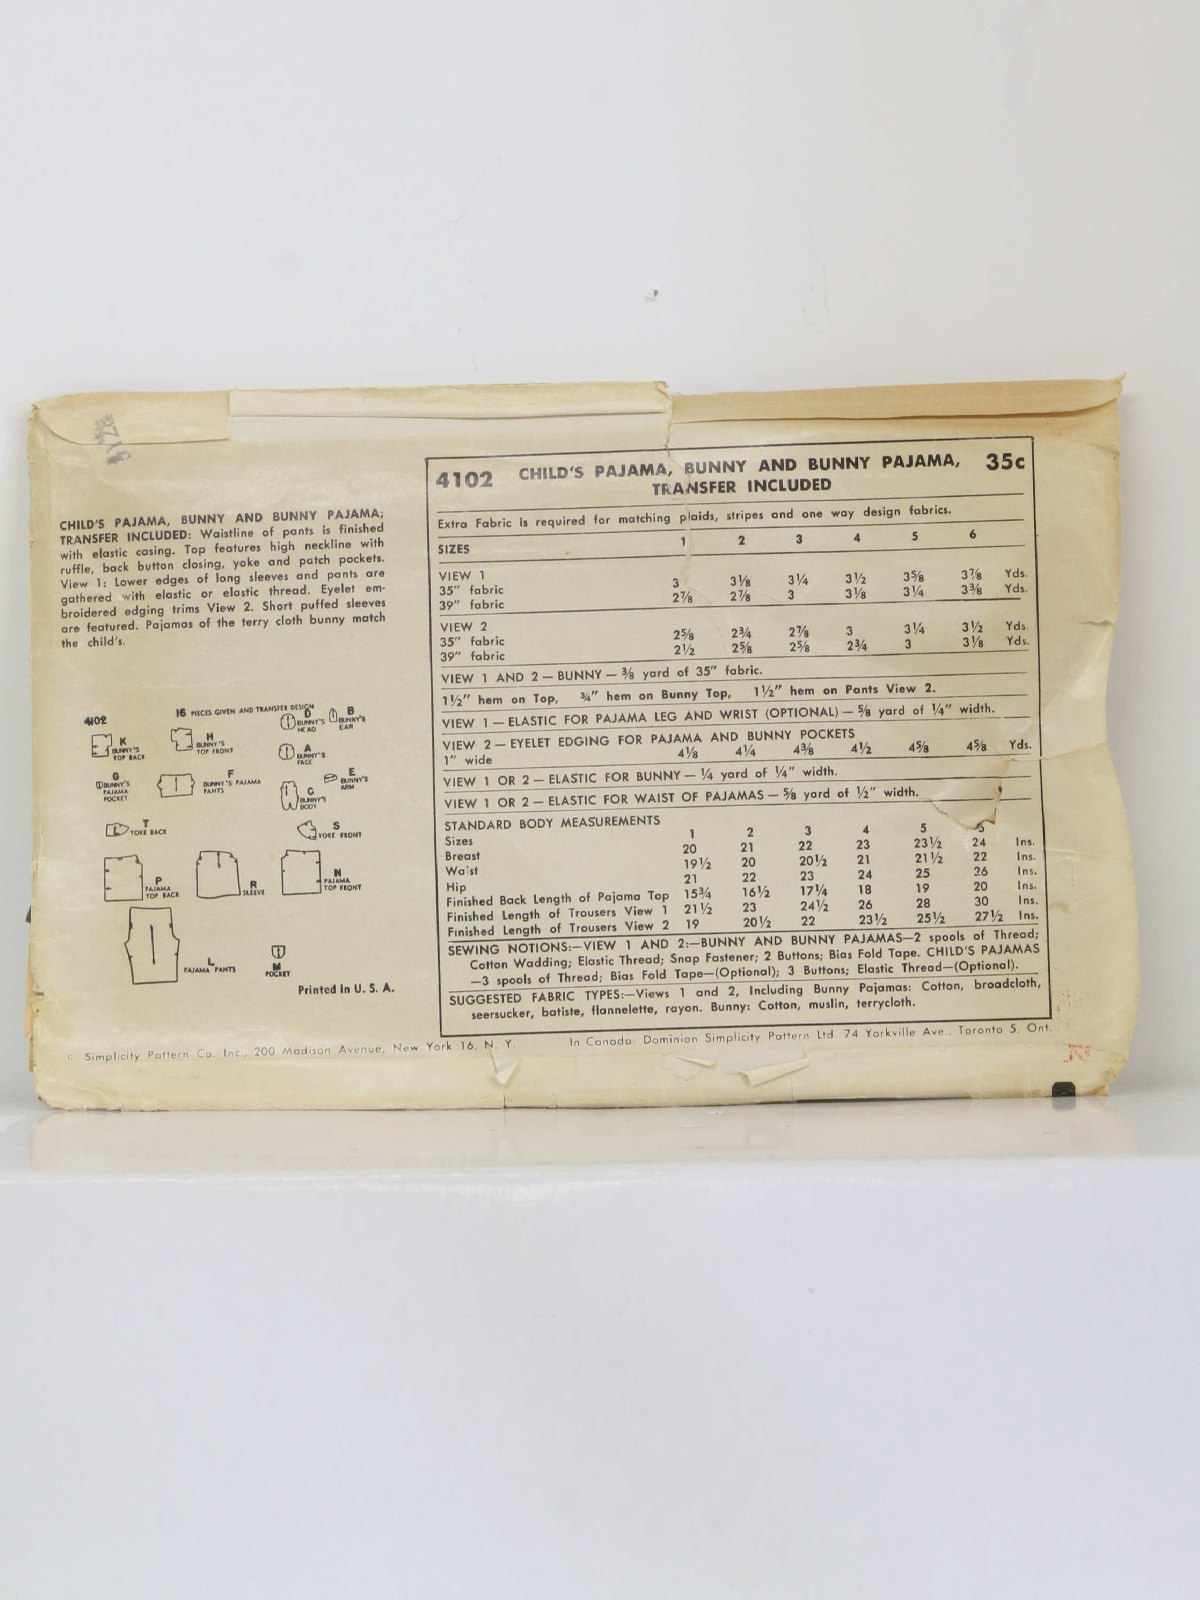 CHILD'S PAJAMA, BUNNY AND BUNNY PAJAMA;
TRANSFER INCLUDED: Waistline of pants is finished
with elastic casing. Top features high neckline with
ruffle, back button closing, yoke and patch pockets.
View 1: Lower edges of long sleeves and pants are
gathered with elastic or elastic thread. Eyelet em-
broidered edging trims View 2. Short puffed sleeves
are featured. Pajamas of the terry cloth bunny match
the child's.
4102 16 PIECES GIVEN AND TRANSFER DESIGN
D BUNNY'S HEAD
B BUNNY'S EAR
K BUNNY'S TOP BACK
H BUNNY'S TOP FRONT
A BUNNY'S FACE
G BUNNY'S PAJAMA POCKET
F BUNNY'S PAJAMA PANTS
E BUNNY'S ARM
C BUNNY'S BODY
T YOKE BACK
S YOKE FRONT
P PAJAMA TOP BACK
R SLEEVE
N PAJAMA TOP FRONT
L PAJAMA PANTS
M POCKET
Printed in U. S. A.
4102 CHILD'S PAJAMA, BUNNY AND BUNNY PAJAMA, 35c
TRANSFER INCLUDED
Extra Fabric is required for matching plaids, stripes and one way design fabrics.
SIZES 1 2 3 4 5 6
VIEW 1
35" fabric 3 3⅛ 3¼ 3½ 3⅝ 3⅞ Yds.
39" fabric 2⅞ 2⅞ 3 3⅛ 3¼ 3⅜ Yds.
VIEW 2
35" fabric 2⅝ 2¾ 2⅞ 3 3¼ 3½ Yds.
39" fabric 2½ 2⅝ 2⅝ 2¾ 3 3⅛ Yds.
VIEW 1 AND 2 — BUNNY — ⅜ yard of 35" fabric.
1½" hem on Top, ¾" hem on Bunny Top, 1½" hem on Pants View 2.
VIEW 1 — ELASTIC FOR PAJAMA LEG AND WRIST (OPTIONAL) — ⅝ yard of ¼" width.
VIEW 2 — EYELET EDGING FOR PAJAMA AND BUNNY POCKETS
1" wide 4⅛ 4¼ 4⅜ 4½ 4⅝ 4⅝ Yds.
VIEW 1 OR 2 — ELASTIC FOR BUNNY — ¼ yard of ¼" width.
VIEW 1 OR 2 — ELASTIC FOR WAIST OF PAJAMAS — ⅝ yard of ½" width.
STANDARD BODY MEASUREMENTS
Sizes 1 2 3 4 5 6
Breast 20 21 22 23 23½ 24 Ins.
Waist 19½ 20 20½ 21 21½ 22 Ins.
Hip 21 22 23 24 25 26 Ins.
Finished Back Length of Pajama Top 15¾ 16½ 17¼ 18 19 20 Ins.
Finished Length of Trousers View 1 21½ 23 24½ 26 28 30 Ins.
Finished Length of Trousers View 2 19 20½ 22 23½ 25½ 27½ Ins.
SEWING NOTIONS:—VIEW 1 AND 2:—BUNNY AND BUNNY PAJAMAS—2 spools of Thread;
Cotton Wadding; Elastic Thread; Snap Fastener; 2 Buttons; Bias Fold Tape. CHILD'S PAJAMAS
—3 spools of Thread; Bias Fold Tape—(Optional); 3 Buttons; Elastic Thread—(Optional).
SUGGESTED FABRIC TYPES:—Views 1 and 2, Including Bunny Pajamas: Cotton, broadcloth,
seersucker, batiste, flannelette, rayon. Bunny: Cotton, muslin, terrycloth.
© Simplicity Pattern Co. Inc., 200 Madison Avenue, New York 16, N. Y. In Canada: Dominion Simplicity Pattern Ltd. 74 Yorkville Ave., Toronto 5, Ont.